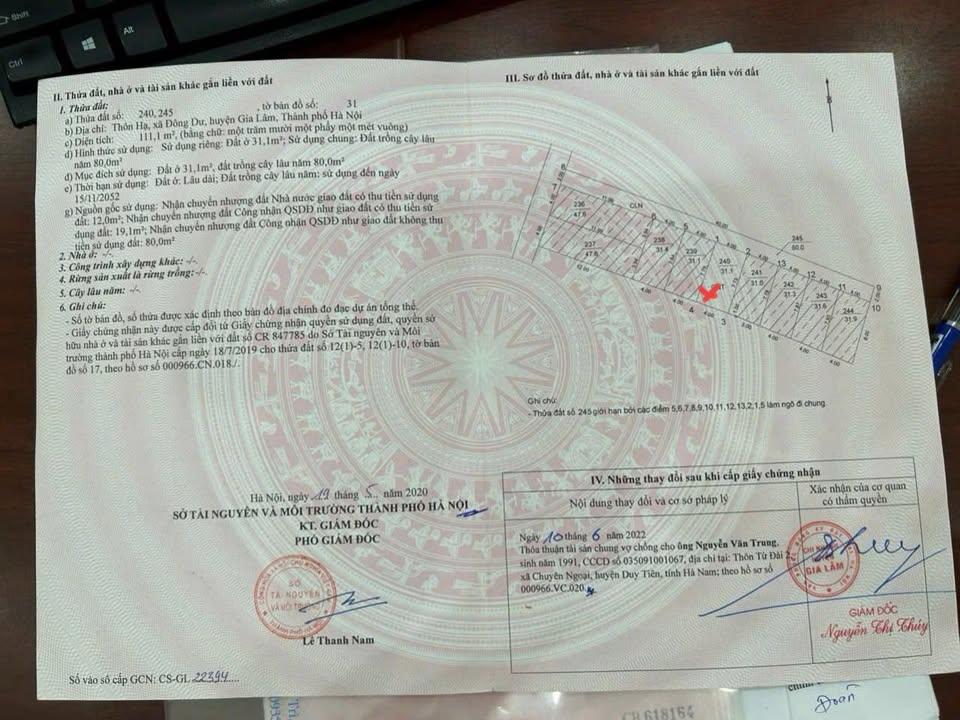 Shift
Ctrl
Alt
II. Thửa đất, nhà ở và tài sản khác gắn liền với đất
1. Thửa đất:
a) Thửa đất số: 240, 245 , tờ bản đồ số: 31
b) Địa chỉ: Thôn Hạ, xã Đông Dư, huyện Gia Lâm, Thành phố Hà Nội
c) Diện tích: 111,1 m², (bằng chữ: một trăm mười một phẩy một mét vuông)
d) Hình thức sử dụng: Sử dụng riêng: Đất ở 31,1m²; Sử dụng chung: Đất trồng cây lâu
năm 80,0m²
đ) Mục đích sử dụng: Đất ở 31,1m², đất trồng cây lâu năm 80,0m²
e) Thời hạn sử dụng: Đất ở: Lâu dài; Đất trồng cây lâu năm: sử dụng đến ngày
15/11/2052
g) Nguồn gốc sử dụng: Nhận chuyển nhượng đất Nhà nước giao đất có thu tiền sử dụng
đất: 12,0m²; Nhận chuyển nhượng đất Công nhận QSDĐ như giao đất có thu tiền sử
dụng đất: 19,1m²; Nhận chuyển nhượng đất Công nhận QSDĐ như giao đất không thu
tiền sử dụng đất: 80,0m²
2. Nhà ở: -/-.
3. Công trình xây dựng khác: -/-.
4. Rừng sản xuất là rừng trồng: -/-.
5. Cây lâu năm: -/-.
6. Ghi chú:
- Số tờ bản đồ, số thửa được xác định theo bản đồ địa chính đo đạc dự án tổng thể.
- Giấy chứng nhận này được cấp đổi từ Giấy chứng nhận quyền sử dụng đất, quyền sở
hữu nhà ở và tài sản khác gắn liền với đất số CR 847785 do Sở Tài nguyên và Môi
trường thành phố Hà Nội cấp ngày 18/7/2019 cho thửa đất số 12(1)-5, 12(1)-10, tờ bản
đồ số 17, theo hồ sơ số 000966.CN.018./.
Hà Nội, ngày 19 tháng 5 năm 2020
SỞ TÀI NGUYÊN VÀ MÔI TRƯỜNG THÀNH PHỐ HÀ NỘI
KT. GIÁM ĐỐC
PHÓ GIÁM ĐỐC
SỞ
TÀI NGUYÊN
VÀ MÔI TRƯỜNG
Lê Thanh Nam
Số vào sổ cấp GCN: CS-GL 22394
III. Sơ đồ thửa đất, nhà ở và tài sản khác gắn liền với đất
B
CLN
236
47.6
237
47.6
238
31.4
239
31.1
240
31.1
241
31.0
242
31.3
243
31.6
244
31.9
245
80.0
Ghi chú:
- Thửa đất số 245 giới hạn bởi các điểm 5,6,7,8,9,10,11,12,13,2,1,5 làm ngõ đi chung.
IV. Những thay đổi sau khi cấp giấy chứng nhận
Nội dung thay đổi và cơ sở pháp lý
Xác nhận của cơ quan
có thẩm quyền
Ngày 10 tháng 6 năm 2022
Thỏa thuận tài sản chung vợ chồng cho ông Nguyễn Văn Trung,
sinh năm 1991, CCCD số 035091001067, địa chỉ tại: Thôn Từ Đài 2,
xã Chuyên Ngoại, huyện Duy Tiên, tỉnh Hà Nam; theo hồ sơ số
000966.VC.020
CHI NHÁNH
GIA LÂM
GIÁM ĐỐC
Nguyễn Thị Thúy
CB 618164
Đoàn